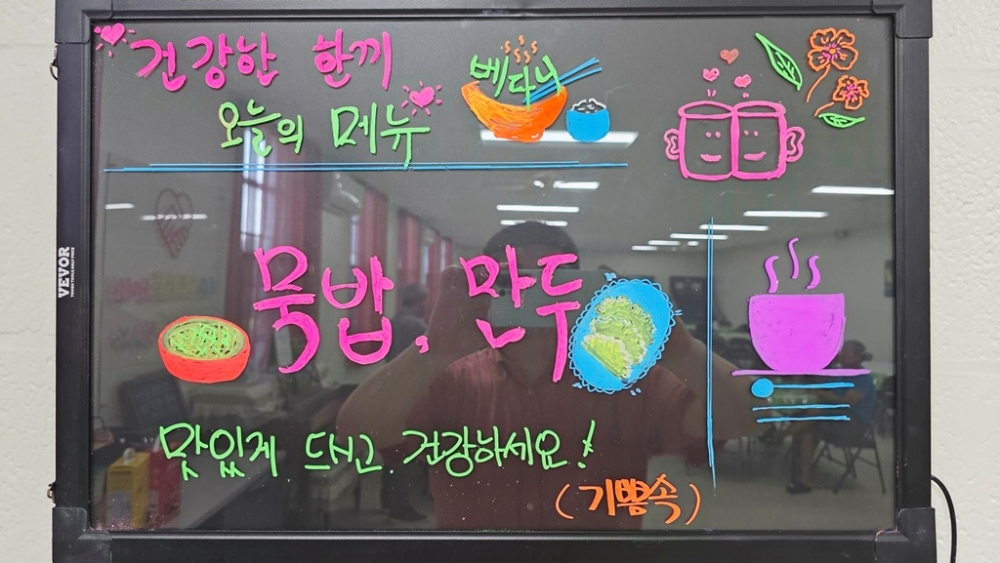 건강한 한끼
오늘의 메뉴
베다니
묵밥, 만두
맛있게 드시고 건강하세요!
(기쁨속)
VEVOR